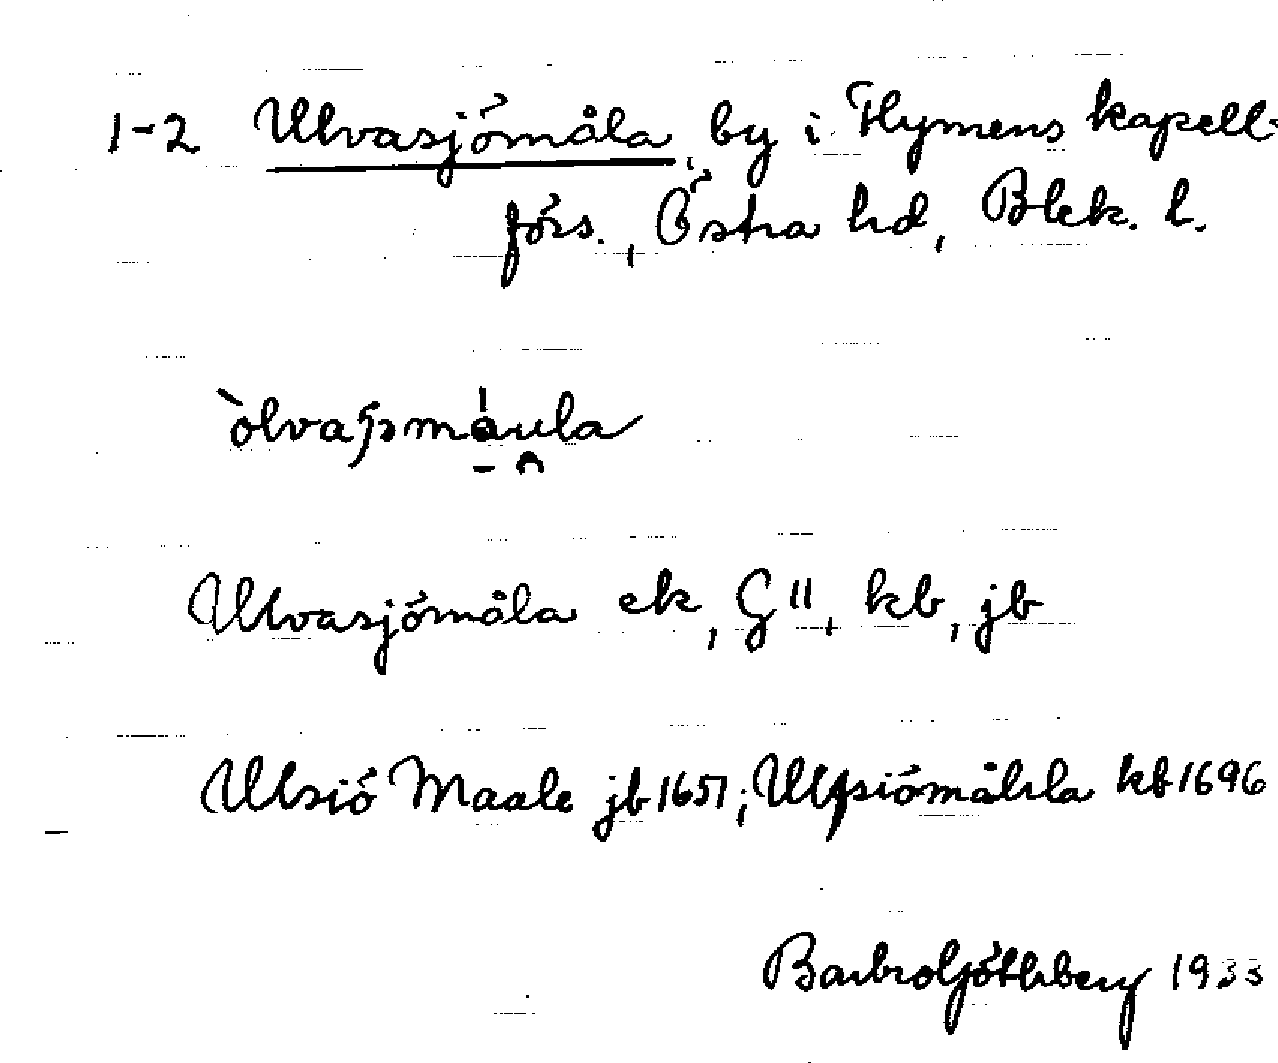 1-2 Ulvasjömåla, by i Flymens kapell-
förs., Östra hd, Blek. l.
Ulvasjömåla ek, GII, kb, jb
Ulvsiö Maale jb 1651; Ulfsiömåhla kb 1696
Barbro Göthberg 1933